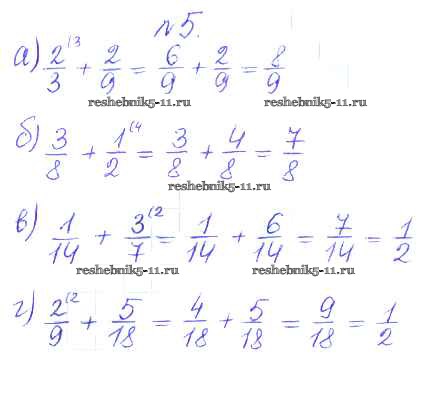 №5.
а) 2/3 (3 + 2/9 = 6/9 + 2/9 = 8/9
reshebnik5-11.ru reshebnik5-11.ru
б) 3/8 + 1/2 (4 = 3/8 + 4/8 = 7/8
reshebnik5-11.ru
в) 1/14 + 3/7 (2 = 1/14 + 6/14 = 7/14 = 1/2
reshebnik5-11.ru reshebnik5-11.ru
г) 2/9 (2 + 5/18 = 4/18 + 5/18 = 9/18 = 1/2